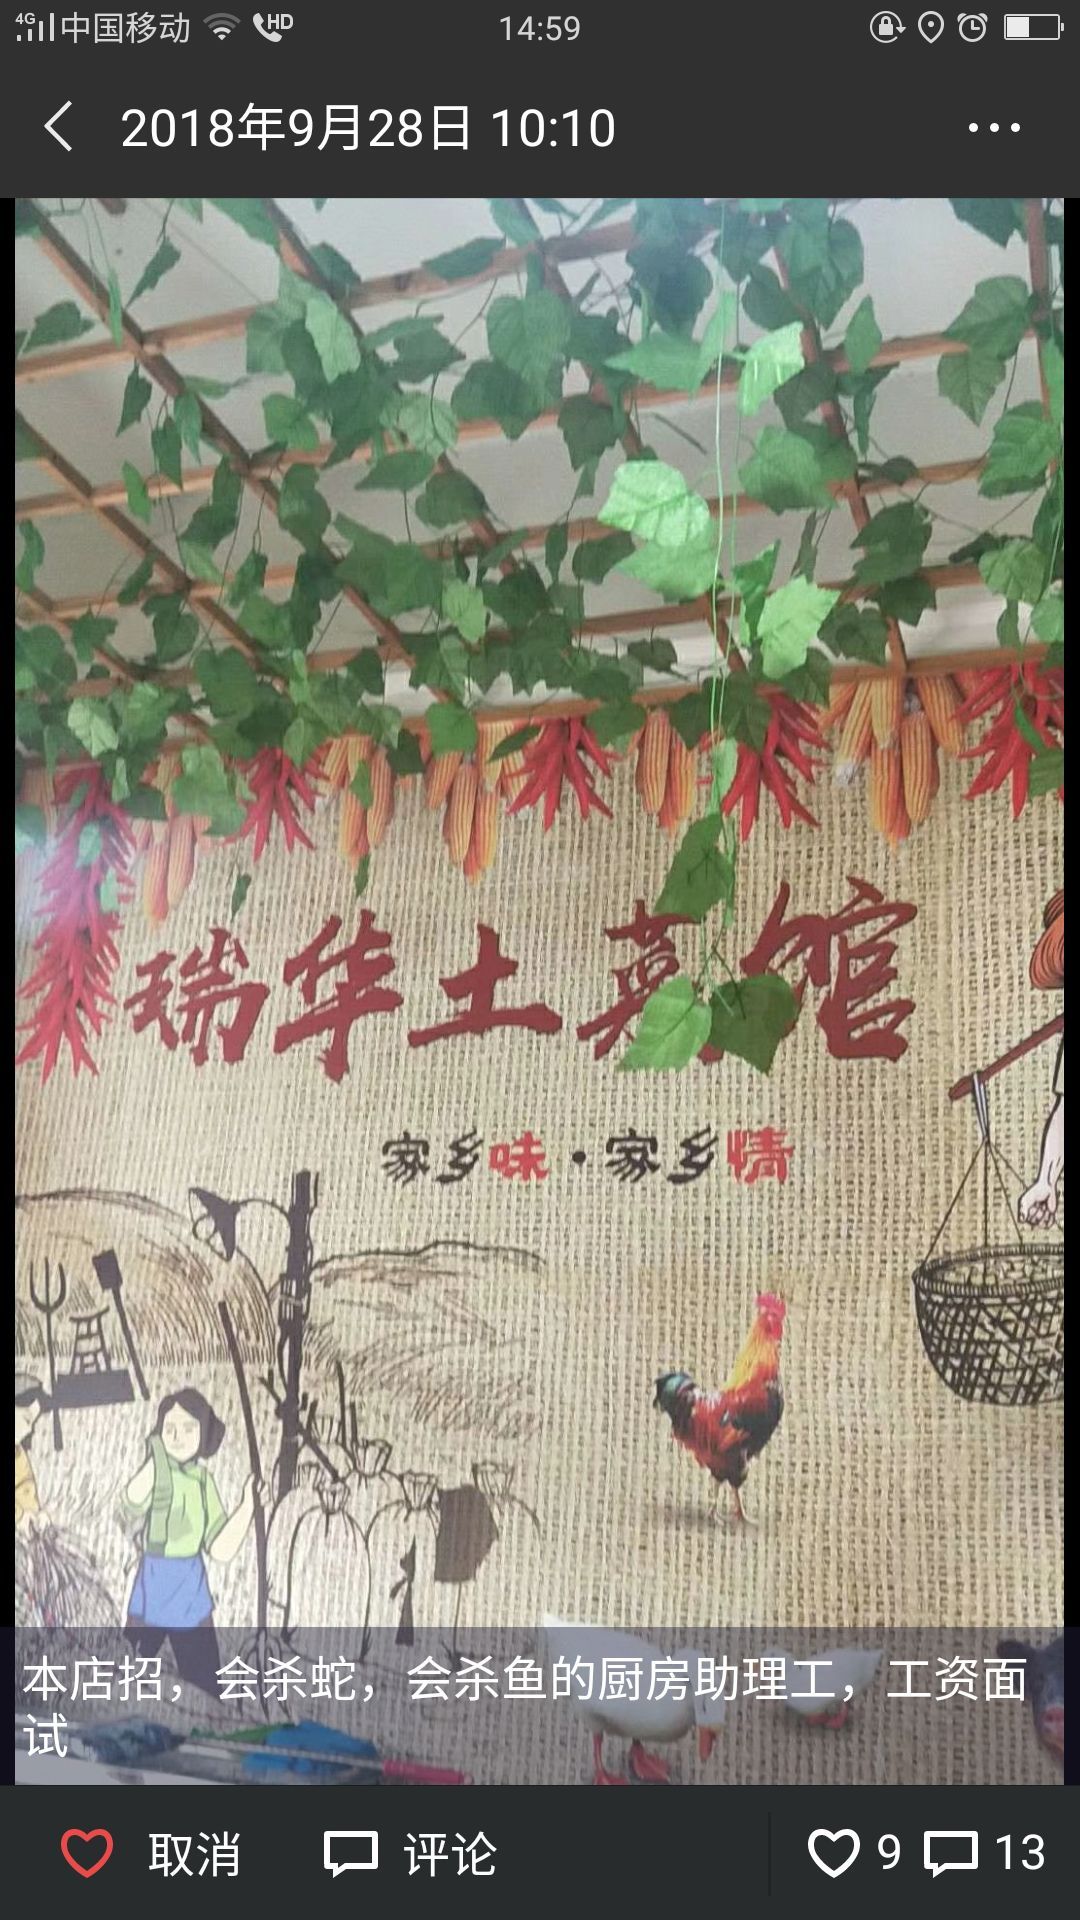 4G 中国移动 HD 14:59
2018年9月28日 10:10
瑞华土菜馆
家乡味·家乡情
本店招，会杀蛇，会杀鱼的厨房助理工，工资面
试
取消 评论 9 13